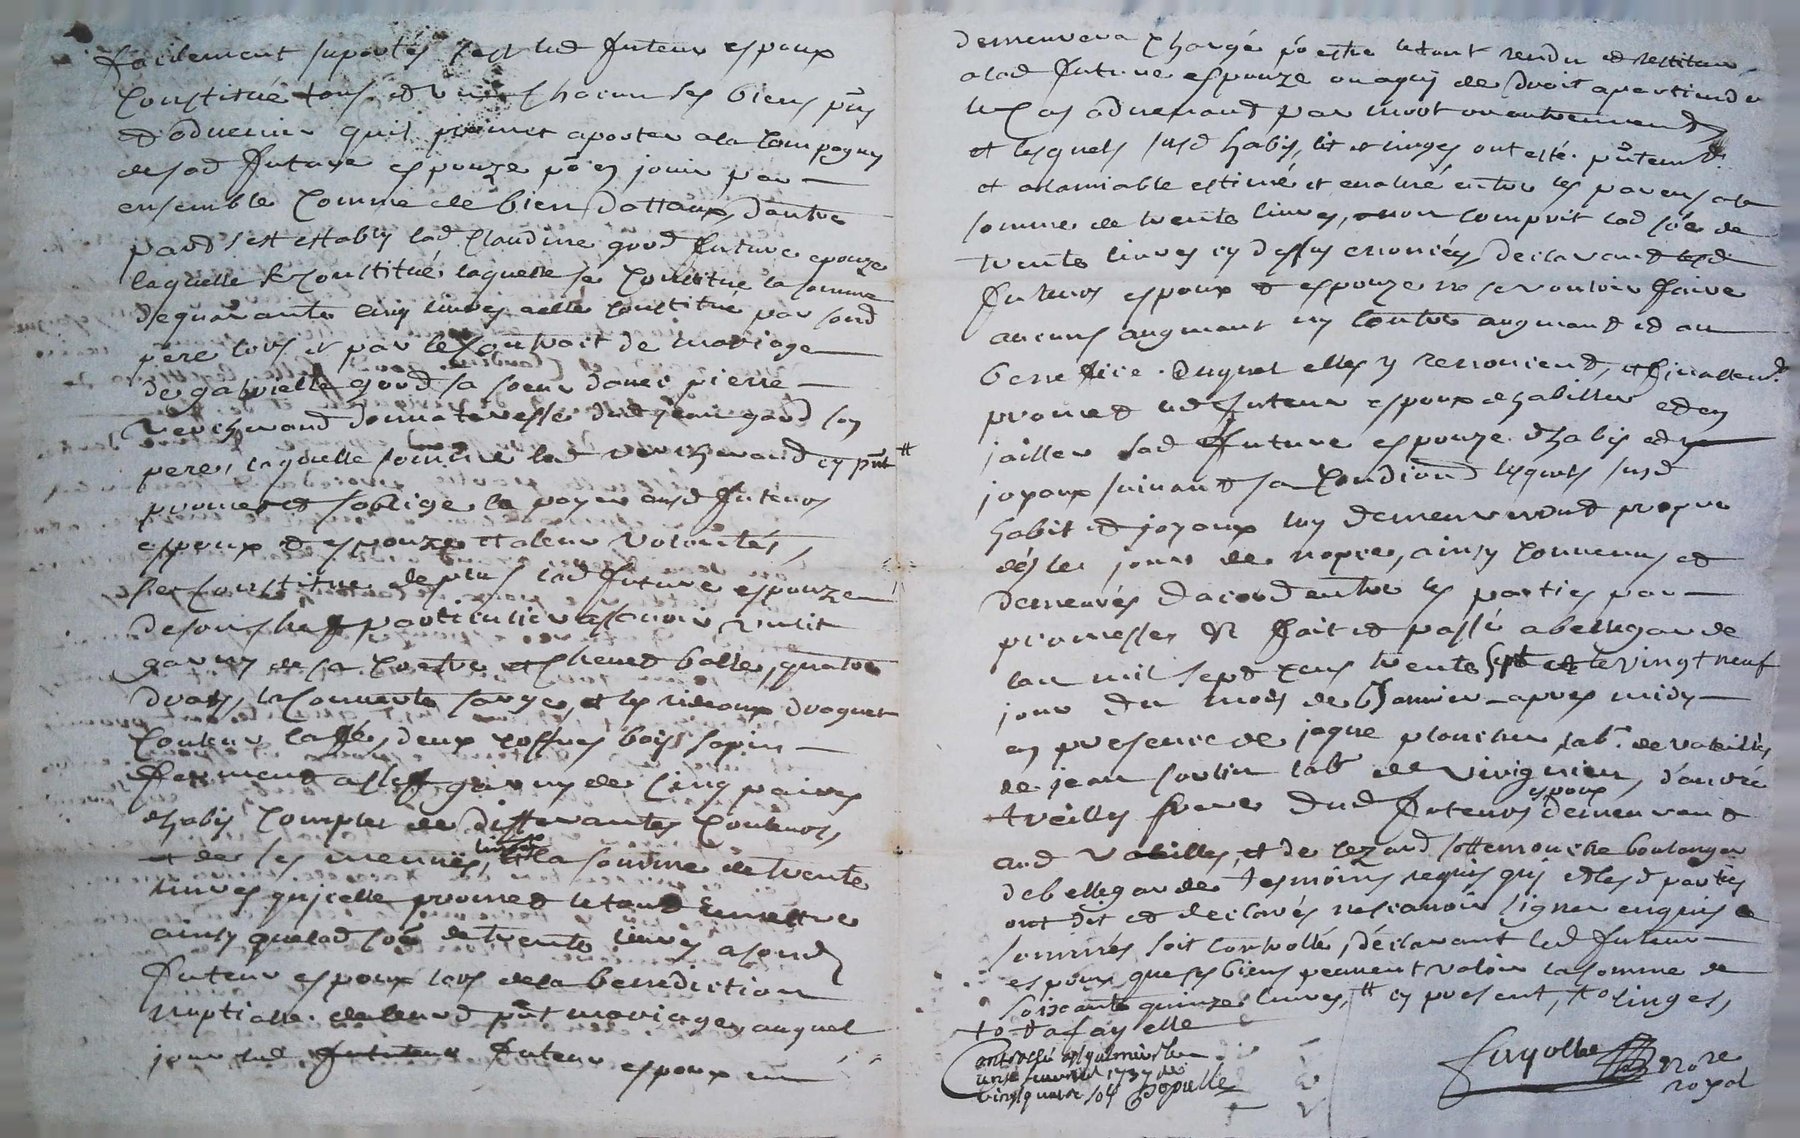 facilement suportés s'est led futeur espoux
constitué tous et un chacun ses biens pnts
et advenir quil promet aporter a la compagny
de sad future espouze po en jouir par
ensemble comme de bien dottaux, dautre
pard s'est establi lad Claudine goud future epouze
laquelle se constitué laquelle se constitue la somme
de quarante cinq livres a elle constitué par sond
père lors et par le contrait de mariage
de gabrielle goud sa soeur d'avec pierre
Verchrand donnateresse dud jean goud son
pere, laquelle somme led Verchrand cy pnt #
promet et soblige la payer ausd futeurs
espoux et espouze et a leur volontés,
se constitue de plus lad future espouze
de son chef particulier ascavoir un lit
garny de sa coutre et chevet balle, quatre
draps, la couverte sarge, et les rideaux droguet
couleur caffé, deux coffres bois sapin
fermend a clef garnys de cinq paires
dhabis complet de differantes couleurs
et de ses menues linges la somme de trente
livres qu'icelle promet le tout remettre
ainsy que lad soe de trente livres a sond
futeur espoux lors de la benediction
nuptialle de leurd pnt mariage, auquel
jour led futeur espoux en
demeurera chargé po estre le tout rendu et restitué
a lad future espouze ou a quy de droit apartiendra
le cas advenand par mort ou autrement
et lesquels susd habis, lit et linges ont esté pntement
et a lamiable estimé et evalué entre les parens a la
somme de trente livres, non comprit lad soe de
trente livres cy dessus enoncés, declarand lesd
futeurs espoux et espouze ne se vouloir faire
aucuns augment ny contre augmand et au
benefice duquel elles y renoncend, et finallemt
promet led futeur espoux dhabiller et en
jailler sad future espouze dhabis et
joyaux suivand sa condiond lesquels susd
habit et joyaux luy demeurerond propre
dés les jour de nopce, ainsy convenus et
demeurés dacord entre les parties par
promesses &c fait et passé a bellegarde
lan mil sept cens trente sept et le vingt neuf
jour du mois de Janvier apres midy
en presence de jaque plancher lab. de valeilles
de jean soulin labr de Virignieu, d'andre
treilly frere dud futeurs espoux demeurand
aud valeilles, et de lezard sottemouche boulanger
de bellegarde tesmoins requis quy et lesd parties
ont dit et declarés ne scavoir signer enquis et
sommés soit controllé, déclarant led futeur
espoux que ses biens peuvent valoir la somme de
soixante quinze livres, # cy present, to linges,
to
Controllé a
1737
vingt quatre sols
Fayolle
nore
royal